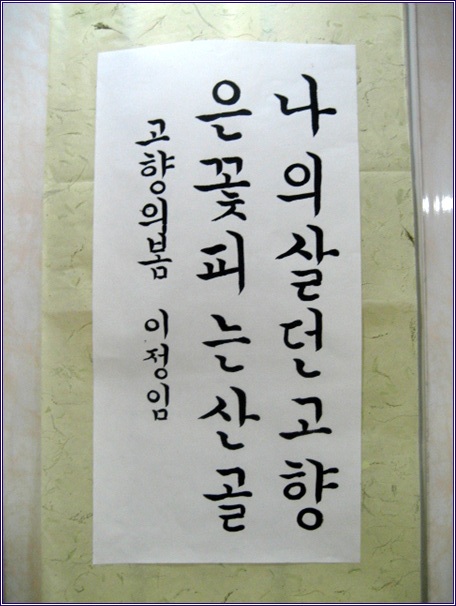 나의살던고향
은꽃피는산골
고향의봄 이정임